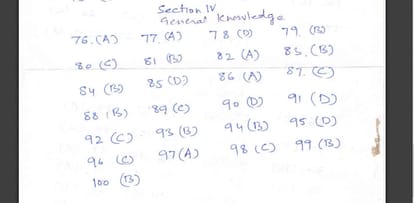 Section IV
General Knowledge
76. (A) 77. (A) 78 (D) 79. (B)
80 (C) 81 (B) 82 (A) 83. (B)
84 (B) 85 (D) 86 (A) 87. (C)
88 (B) 89 (C) 90 (D) 91 (D)
92 (C) 93 (B) 94 (B) 95 (D)
96 (C) 97 (A) 98 (C) 99 (B)
100 (B)